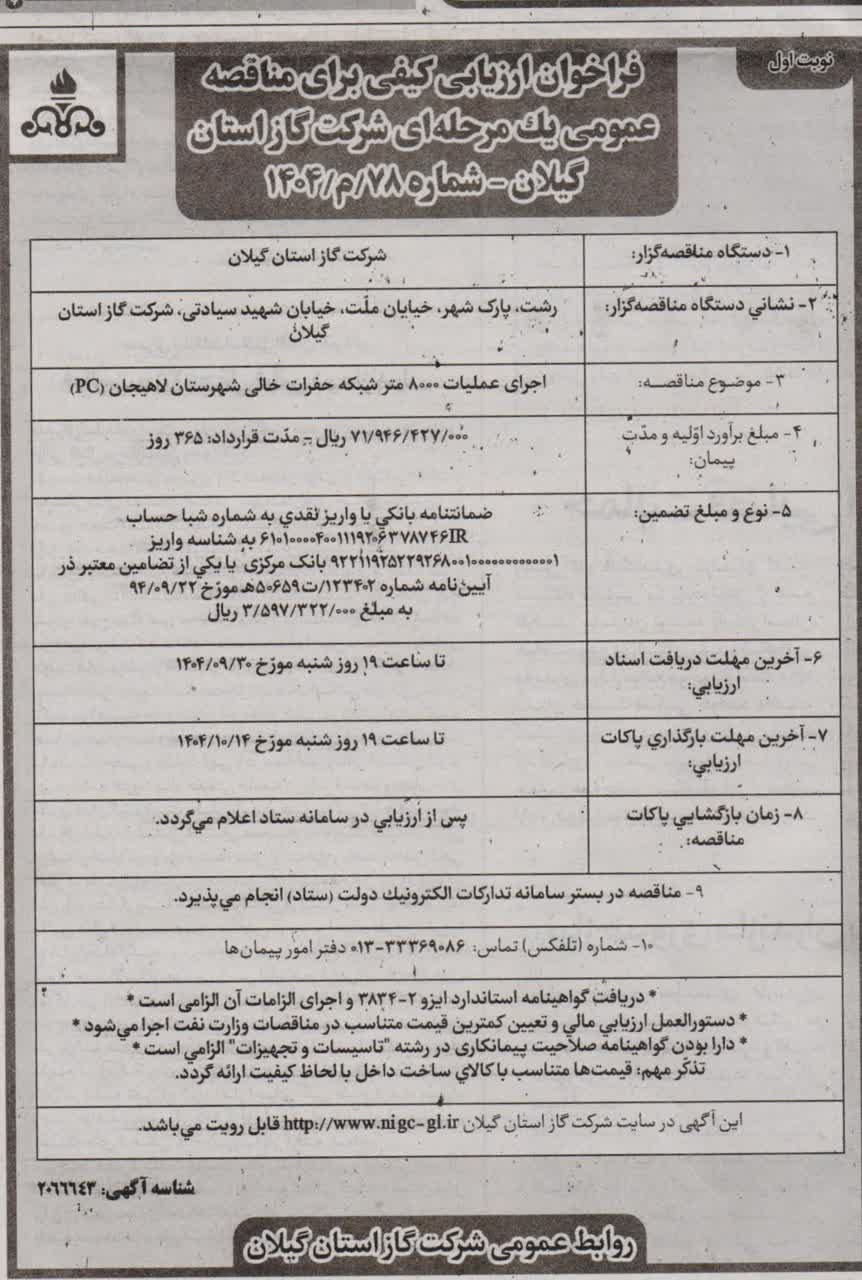 نوبت اول
فراخوان ارزیابی کیفی برای مناقصه
عمومی یك مرحله‌ای شرکت گاز استان
گیلان - شماره ۷۸/م/۱۴۰۴
۱- دستگاه مناقصه‌گزار:
شرکت گاز استان گیلان
۲- نشاني دستگاه مناقصه‌گزار:
رشت، پارک شهر، خیابان ملّت، خیابان شهید سیادتی، شرکت گاز استان
گیلان
۳- موضوع مناقصـه:
اجرای عملیات ۸۰۰۰ متر شبکه حفرات خالی شهرستان لاهیجان (PC)
۴- مبلغ برآورد اوّلیه و مدّت
پیمان:
۷۱/۹۴۶/۴۲۷/۰۰۰ ریال - مدّت قرارداد: ۳۶۵ روز
۵- نوع و مبلغ تضمین:
ضمانتنامه بانکي یا واریز نقدي به شماره شبا حساب
۶۱۰۱۰۰۰۰۴۰۰۱۱۱۹۲۰۶۳۷۸۷۴۶IR به شناسه واریز
بانک مرکزی یا یکي از تضامین معتبر در
آیین‌نامه شماره ۱۲۳۴۰۲/ت۵۰۶۵۹هـ مورّخ ۹۴/۰۹/۲۲
به مبلغ ۳/۵۹۷/۳۲۲/۰۰۰ ریال
۶- آخرین مهلت دریافت اسناد
ارزیابي:
تا ساعت ۱۹ روز شنبه مورّخ ۱۴۰۴/۰۹/۳۰
۷- آخرین مهلت بارگذاري پاکات
ارزیابي:
تا ساعت ۱۹ روز شنبه مورّخ ۱۴۰۴/۱۰/۱۴
۸- زمان بازگشايي پاکات
مناقصه:
پس از ارزیابي در سامانه ستاد اعلام مي‌گردد.
۹- مناقصه در بستر سامانه تدارکات الکترونیك دولت (ستاد) انجام مي‌پذیرد.
۱۰- شماره (تلفکس) تماس: ۳۳۳۶۹۰۸۶-۰۱۳ دفتر امور پیمان‌ها
* دریافت گواهینامه استاندارد ایزو ۲-۳۸۳۴ و اجرای الزامات آن الزامی است *
* دستورالعمل ارزیابي مالي و تعیین کمترین قیمت متناسب در مناقصات وزارت نفت اجرا مي‌شود *
* دارا بودن گواهینامه صلاحیت پیمانکاری در رشته "تاسیسات و تجهیزات" الزامي است *
تذکّر مهم: قیمت‌ها متناسب با کالاي ساخت داخل با لحاظ کیفیت ارائه گردد.
این آگهی در سایت شرکت گاز استان گیلان http://www.nigc-gl.ir قابل رویت مي‌باشد.
شناسه آگهی: ۲۰۶۶۶۴۳
روابط عمومی شرکت گاز استان گیلان